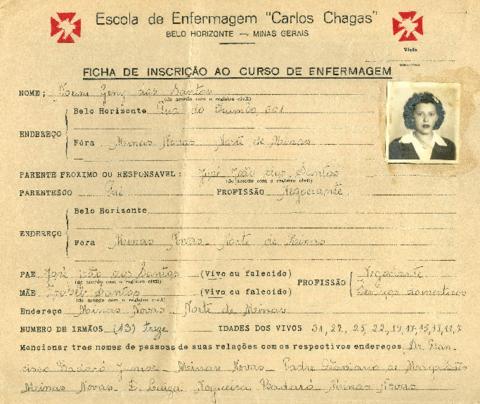 Escola de Enfermagem "Carlos Chagas"
BELO HORIZONTE — MINAS GERAIS
Visto
FICHA DE INSCRIÇÃO AO CURSO DE ENFERMAGEM
NOME: Geny dos Santos
(de acordo com o registro civil)
Belo Horizonte Rua do
ENDEREÇO
Fóra Minas Novas Norte de Minas
PARENTE PROXIMO OU RESPONSAVEL: José João dos Santos
(de acordo com o registro civil)
PARENTESCO Pai PROFISSÃO Negociante
Belo Horizonte
ENDEREÇO
Fóra Minas Novas - Norte de Minas
PAE José João dos Santos (Vivo ou falecido) Negociante
(de acordo com o registro civil)
PROFISSÃO
MÃE Santos (Vivo ou falecido) Serviços domesticos
(de acordo com o registro civil)
Endereço Minas Novas - Norte de Minas
NUMERO DE IRMÃOS (13) Treze IDADES DOS VIVOS 31, 27, 25, 22, 19, 17, 15, 13, 11, 7
Mencionar tres nomes de pessoas de suas relações com os respectivos endereços Dr. Fran-
cisco Badaró Junior - Minas Novas - Padre de
Minas Novas - Nogueira Badaró Minas Novas